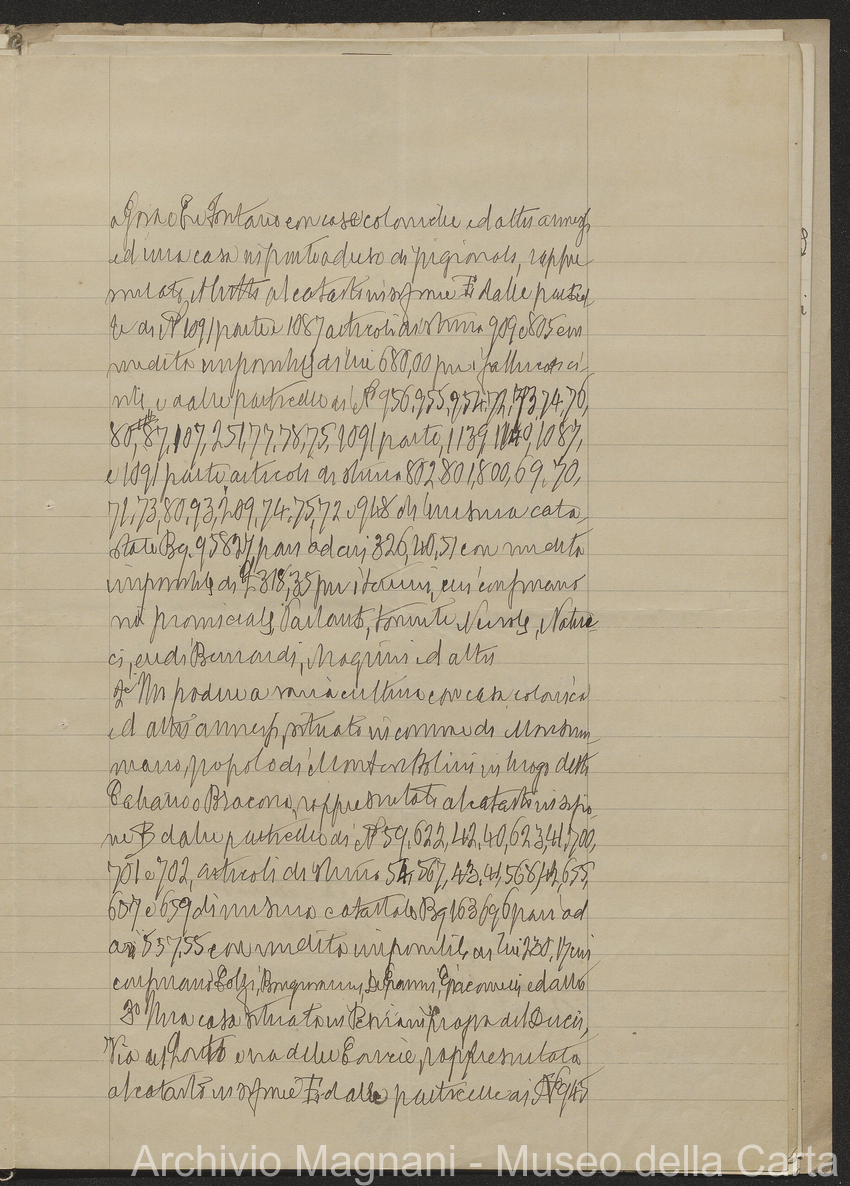 e Fontano con case coloniche ed altri annessi
ed una casa ad uso di pigionale, rappre
sentato il tutto al catasto in sezione E dalle particel
le di N° 1091 parte e 1087 articoli di stima 909 e 805 con
rendita imponibile di lire 680,00 per i fabbricati
e dalle particelle di N° 956, 955, 954, 72, 73, 74, 76,
80, 87, 107, 251, 77, 78, 75, 1091 parte, 1139, 1140, 1087,
e 1091 parte articoli di stima 802 801, 800, 69, 70,
71, 73, 80, 93, 209, 74, 75, 72 e 948 di misura cata-
stale Bq. 95827, pari ad ari 326,40,51 con rendita
imponibile di £ 318,35 per i terreni, cui confinano
vie provinciali, torrente Nievole,
eredi Bernardi, Magrini ed altri
2° Un podere a varia cultura con casa colonica
ed altri annessi, situato in comune di Monsum-
mano, popolo di Montevettolini in luogo detto
o Bracona, rappresentato al catasto in sezio-
ne B dalle particelle di N° 59, 622, 42, 40, 623, 41, 700,
701 e 702, articoli di stima 54, 567, 43, 41, 568, 42, 655,
657 e 659 di misura catastale Bq 163696 pari ad
ari 557,55 con rendita imponibile di lire 230,17 cui
confinano Bongiovanni, De Giovanni, Giacomelli ed altri
3° Una casa situata in Pescia,
Via del e via delle rappresentata
al catasto in sezione E dalle particelle di N° 945
Archivio Magnani - Museo della Carta